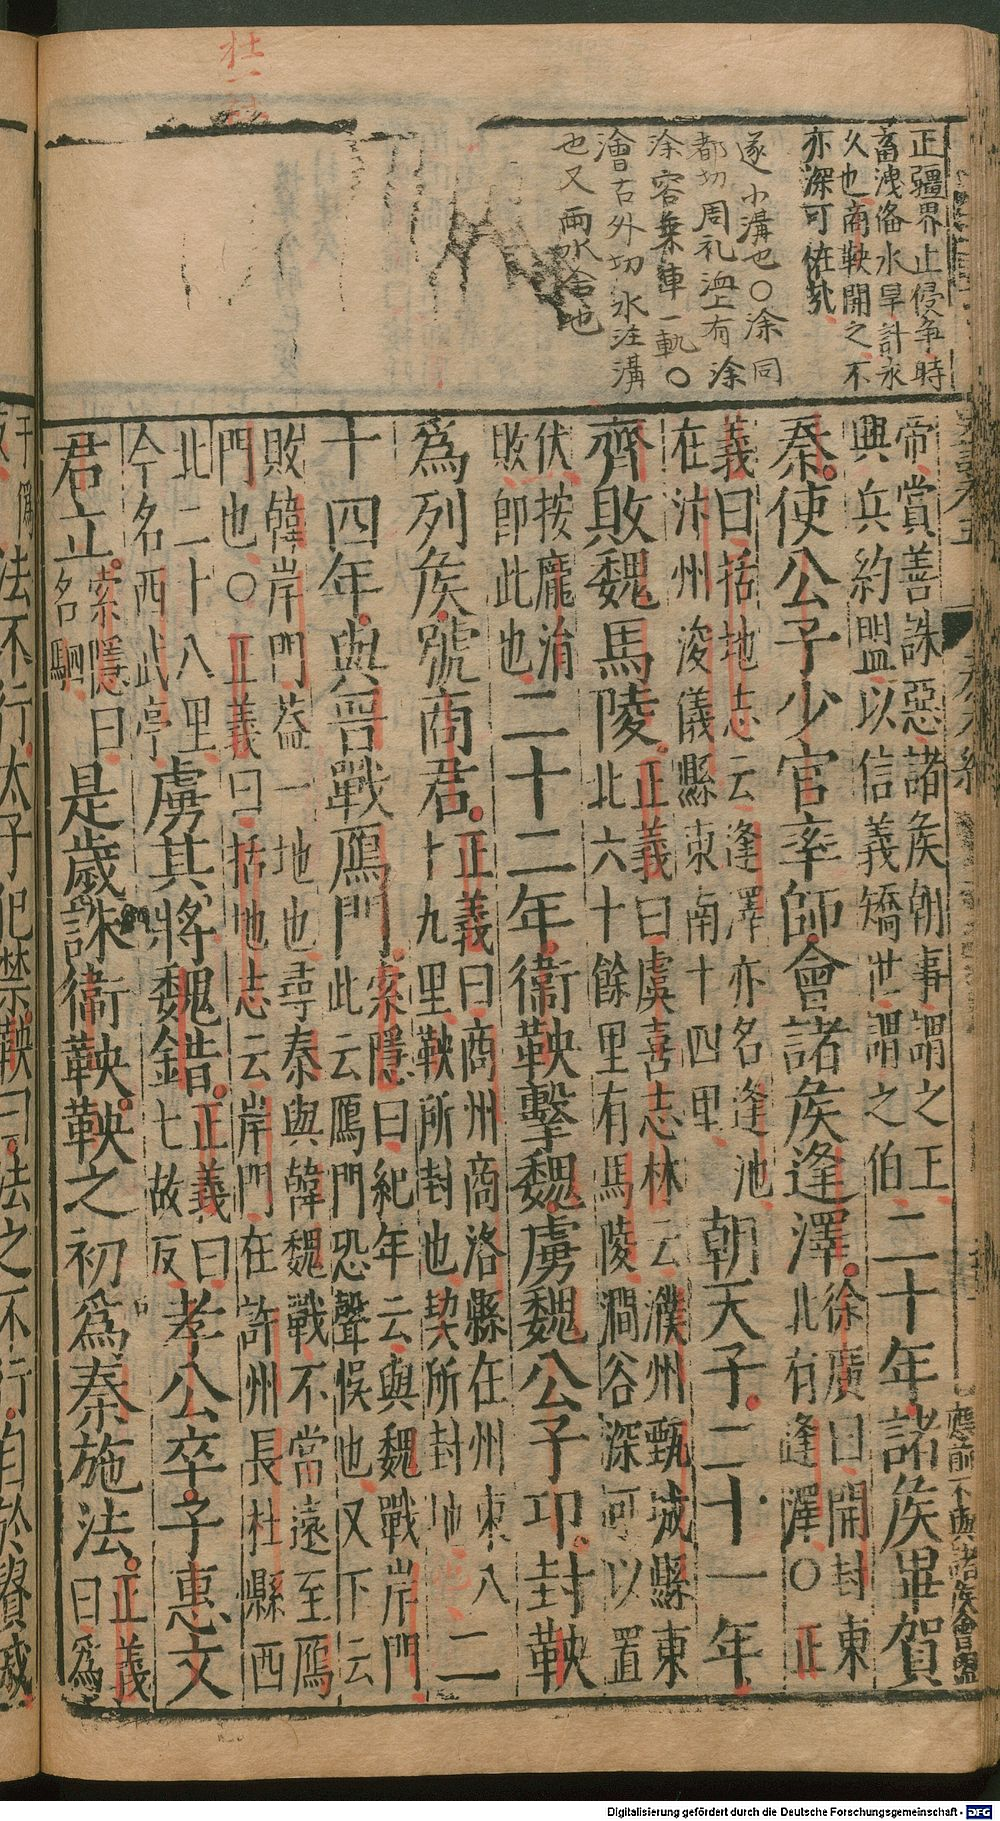 正疆界止侵争時
畜洩俻水旱計永
久也商鞅開之不
亦深可依㢤
遂小溝也〇涂同
都切周礼洫上有涂
涂容乗車一軌〇
澮古外切水注溝
也又兩水合也
帝賞善誅惡諸矦朝事謂之王
興兵約盟以信義矯世謂之伯
二十年諸矦畢賀
秦使公子少官率師會諸矦逢澤
徐廣曰開封東
北有逢澤〇正
義曰括地志云逢澤亦名逢池
在汴州浚儀縣東南十四里
朝天子二十一年
齊敗魏馬陵
正義曰虞喜志林云濮州甄城縣東
北六十餘里有馬陵澗谷深可以置
伏按龐涓
敗即此也
二十二年衞鞅擊魏虜魏公子卬封鞅
爲列矦號商君
正義曰商州商洛縣在州東八
十九里鞅所封也契所封地
二
十四年與晉戰鴈門
索隱曰紀年云與魏戰岸門
此云鴈門恐聲悞也又下云
敗韓岸門蓋一地也尋秦與韓魏戰不當遠至鴈
門也〇正義曰括地志云岸門在許州長杜縣西
北二十八里
今名西武亭
虜其將魏錯
正義曰
七故反
孝公卒子惠文
君立
索隱曰
名駉
是歲誅衞鞅鞅之初爲秦施法
正義
曰爲
應前不與諸矦會盟
法不行太子犯禁鞅曰法之不行自於貴戚
Digitalisierung gefördert durch die Deutsche Forschungsgemeinschaft - DFG